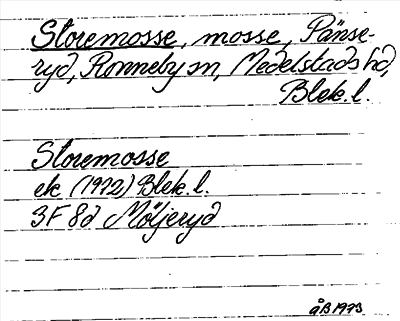 Storemosse, mosse, Pänse-
ryd, Ronneby sn, Medelstads hd,
Blek. l.
Storemosse
ek (1972) Blek. l.
3F 8d Möljeryd
åB 1973